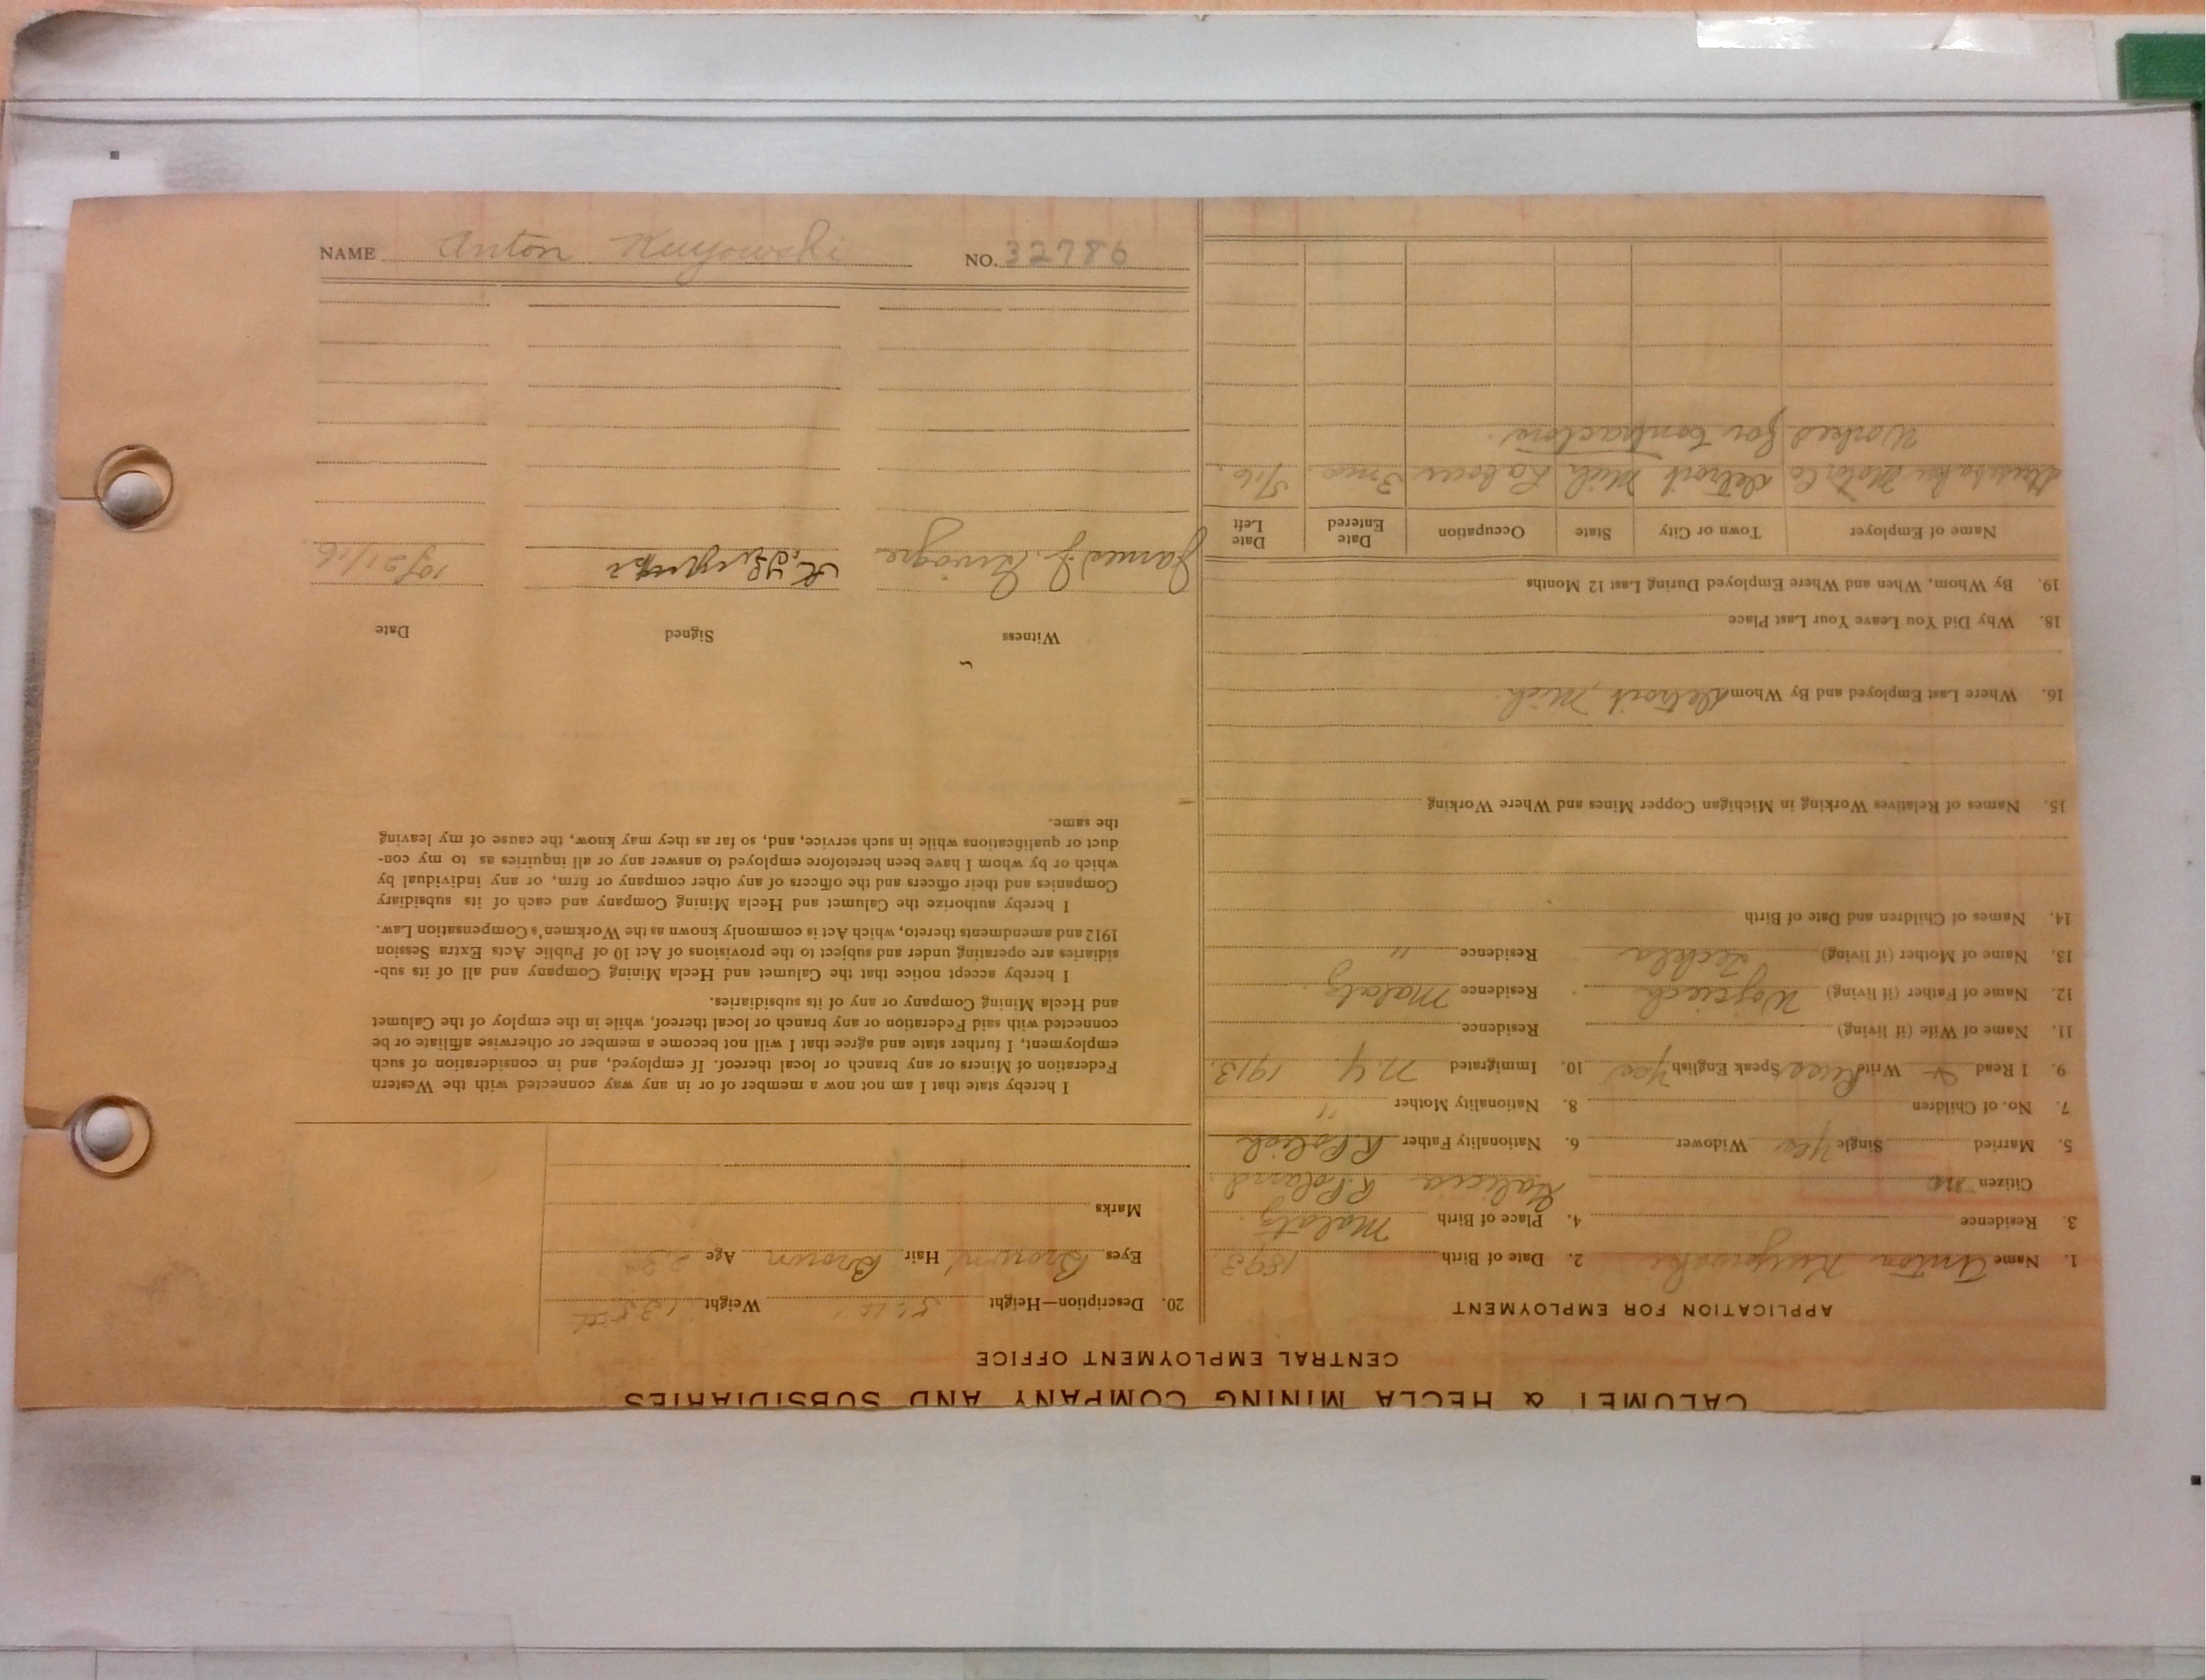 NAME Anton Kuyowski NO. 32786
CALUMET & HECLA MINING COMPANY AND SUBSIDIARIES
CENTRAL EMPLOYMENT OFFICE
APPLICATION FOR EMPLOYMENT
1. Name Anton Kuyowski 2. Date of Birth 1893
3. Residence 4. Place of Birth Malaty
Citizen no Galicia R. Poland
5. Married Single Yes Widower 6. Nationality Father R. Polish
7. No. of Children 8. Nationality Mother "
9. I Read & Write Russ Speak English Yes 10. Immigrated N.Y. 1913.
11. Name of Wife (if living) Residence
12. Name of Father (if living) Wojciech Residence Malaty
13. Name of Mother (if living) Residence "
14. Names of Children and Date of Birth
15. Names of Relatives Working in Michigan Copper Mines and Where Working
16. Where Last Employed and By Whom Detroit, Mich.
18. Why Did You Leave Your Last Place
19. By Whom, When and Where Employed During Last 12 Months
Name of Employer Town or City State Occupation Date Entered Date Left
Studebaker Motor Co Detroit Mich Laborer 3 mo.
Worked for Contractors.
20. Description—Height Weight 135#
Eyes Brown Hair Brown Age 23
Marks
I hereby state that I am not now a member of or in any way connected with the Western
Federation of Miners or any branch or local thereof. If employed, and in consideration of such
employment, I further state and agree that I will not become a member or otherwise affiliate or be
connected with said Federation or any branch or local thereof, while in the employ of the Calumet
and Hecla Mining Company or any of its subsidiaries.
I hereby accept notice that the Calumet and Hecla Mining Company and all of its sub-
sidiaries are operating under and subject to the provisions of Act 10 of Public Acts Extra Session
1912 and amendments thereto, which Act is commonly known as the Workmen's Compensation Law.
I hereby authorize the Calumet and Hecla Mining Company and each of its subsidiary
Companies and their officers and the officers of any other company or firm, or any individual by
which or by whom I have been heretofore employed to answer any or all inquiries as to my con-
duct or qualifications while in such service, and, so far as they may know, the cause of my leaving
the same.
Witness Signed Date
James J. 10/21/16.